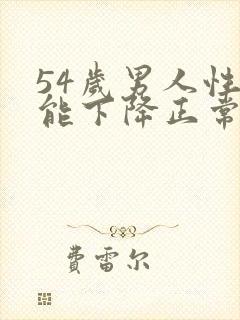 54歲男人性
能下降正常
費雷尔